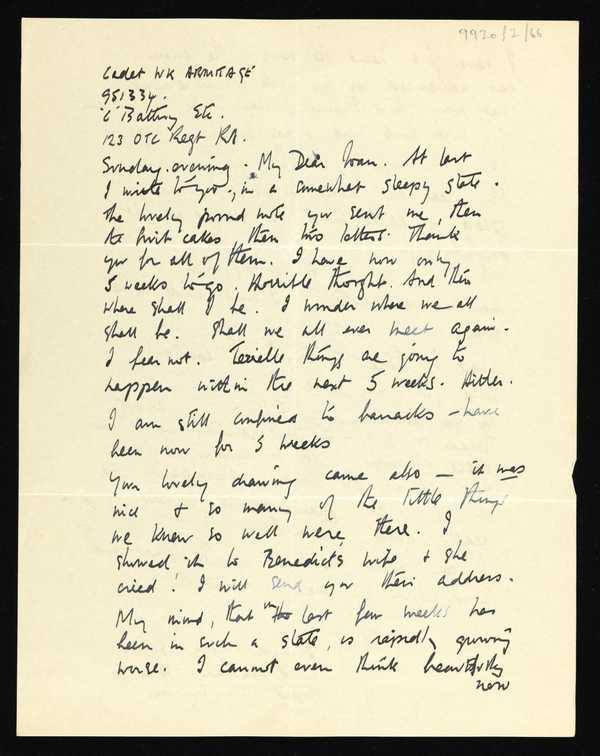 9920/2/66
Cadet WK ARMITAGE
951334.
'C' Battery Etc.
123 OTC Regt RA.
Sunday. evening. My Dear Joan. At last
I write to you, in a somewhat sleepy state.
The lovely pound note you sent me, then
the fruit cakes then two letters. Thank
you for all of them. I have now only
5 weeks to go. Horrible thought. And then
where shall I be. I wonder where we all
shall be. Shall we all ever meet again.
I fear not. Terrible things are going to
happen within the next 5 weeks. Hitler.
I am still confined to barracks - have
been now for 5 weeks
Your lovely drawing came also — it was
nice & so many of the little things
we know so well were there. I
showed it to Benedict's wife & she
cried! I will send you their address.
My mind, that in the last few weeks has
been in such a state, is rapidly growing
worse. I cannot even think beautifully
now